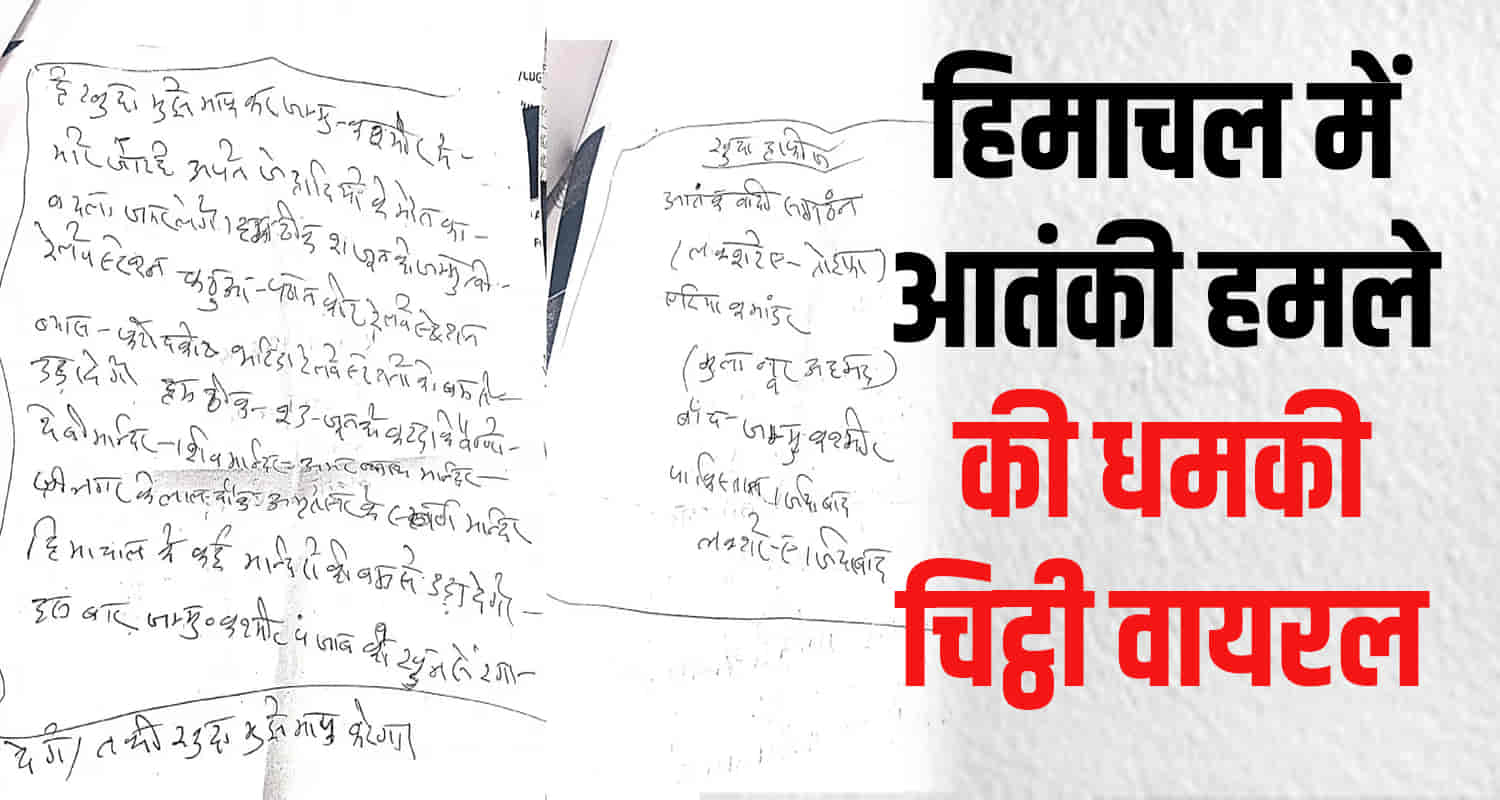 हे खुदा मुझे माफ कर जम्मु-कश्मीर मे-
मारे जा रहे अपने जेहादियों के मौत का-
बदला जरुर लेगें। हम ठीक २१ जून को जम्मु की-
रेलवे स्टेशन कठुआ-पठान कोट रेलवे स्टेशन
ब्यास- भटिंडा रेलवे स्टेशनों को बम से-
उड़ा देगें हम ठीक- २३-जून को कटरा के वैष्णो-
देवी मन्दिर-। शिव मन्दिर- अमरनाथ मन्दिर-
श्री नगर के लाल-चौक- अमृतसर के स्वर्ण मन्दिर
हिमाचल के कई मन्दिरो को बम से उड़ा देगें-
इस बार जम्मु॰कश्मीर पंजाब को खुन से रंगा-
देगें। तभी खुदा मुझे माफ करेगा।
/LUG
खुदा हाफीज
आतंकवादी संगठन
(लक्शरे ए- तोईफा)
एरिया कमांडर
(मुला नूर अहमद)
जम्मु-कश्मीर
पाकिस्तान जिंदाबाद
लक्शरे-ए। जिंदाबाद
हिमाचल में
आतंकी हमले
की धमकी
चिट्ठी वायरल